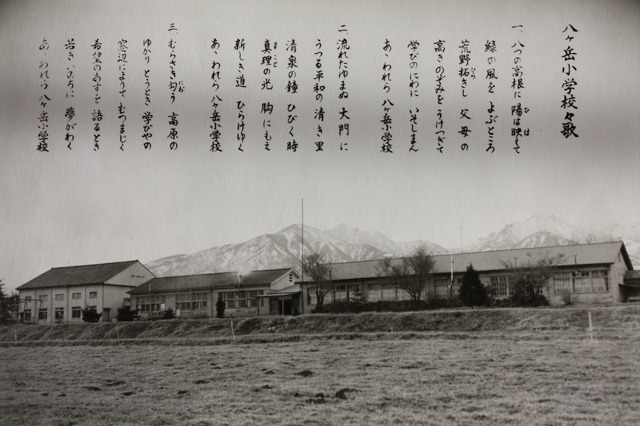 八ヶ岳小学校々歌
一、八つの高根に 陽は映えて
緑の風を よぶところ
荒野拓きし 父母の
高きのぞみを うけつぎて
学びのにわに いそしまん
あゝ われら 八ヶ岳小学校
二、流れたゆまぬ 大門に
うつる平和の 清き里
清泉の鐘 ひびく時
真理の光 胸にもえ
新しき道 ひらけゆく
あゝ われら 八ヶ岳小学校
三、むらさき匂う 高原の
ゆかり とうとき 学びやの
窓辺によりて むつまじく
希望のあすを 語るとき
若きいのちに 夢がわく
あゝ われら 八ヶ岳小学校